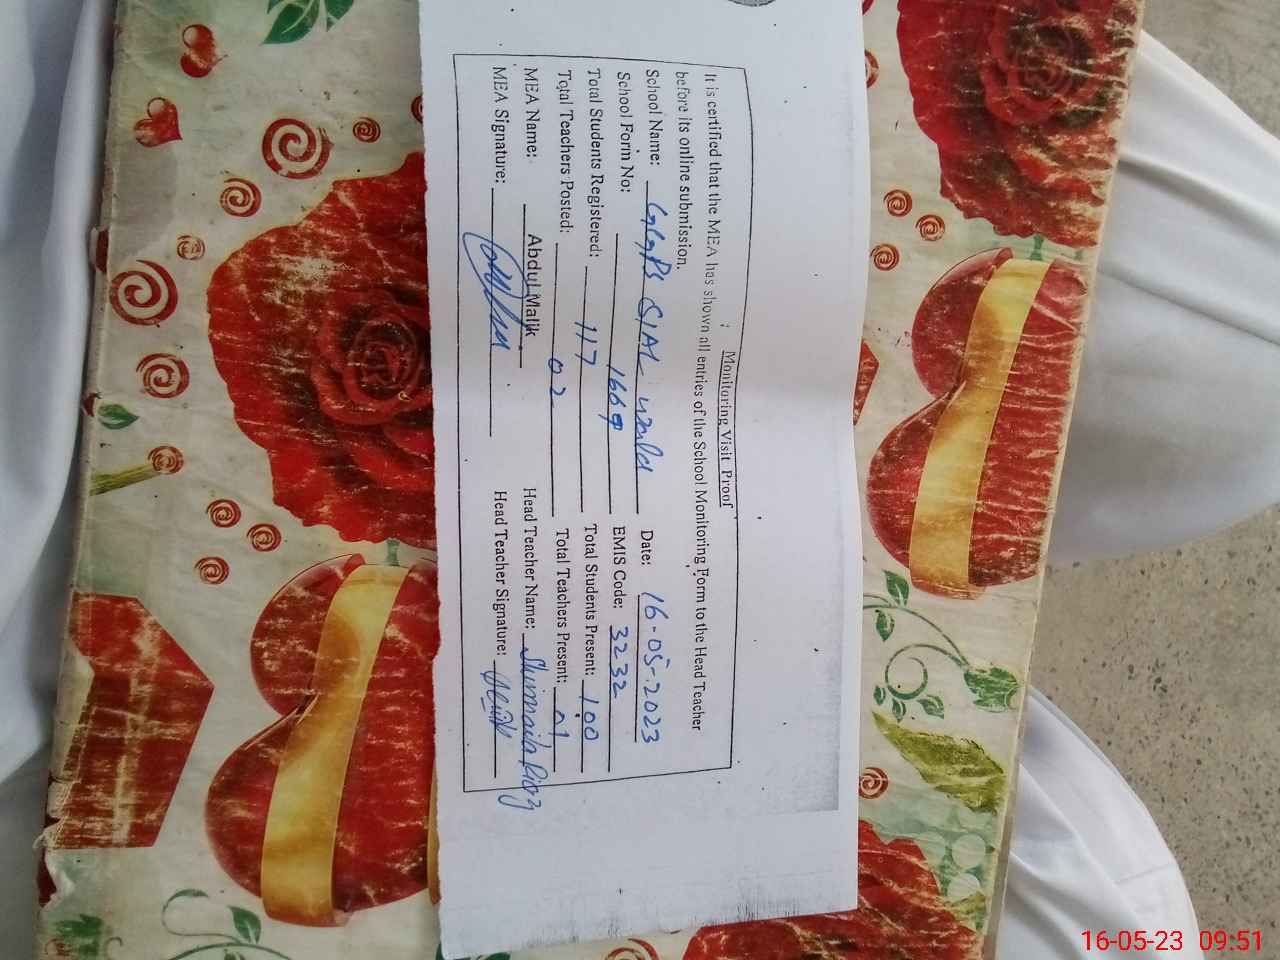 Monitoring Visit Proof
It is certified that the MEA has shown all entries of the School Monitoring Form to the Head Teacher
before its online submission.
School Name: GGPS SIAL Date: 16-05-2023
School Form No: 1669 EMIS Code: 3232
Total Students Registered: 117 Total Students Present: 100
Total Teachers Posted: 02 Total Teachers Present: 01
MEA Name: Abdul Malik Head Teacher Name: Shumaila Riaz
MEA Signature: Head Teacher Signature:
16-05-23 09:51